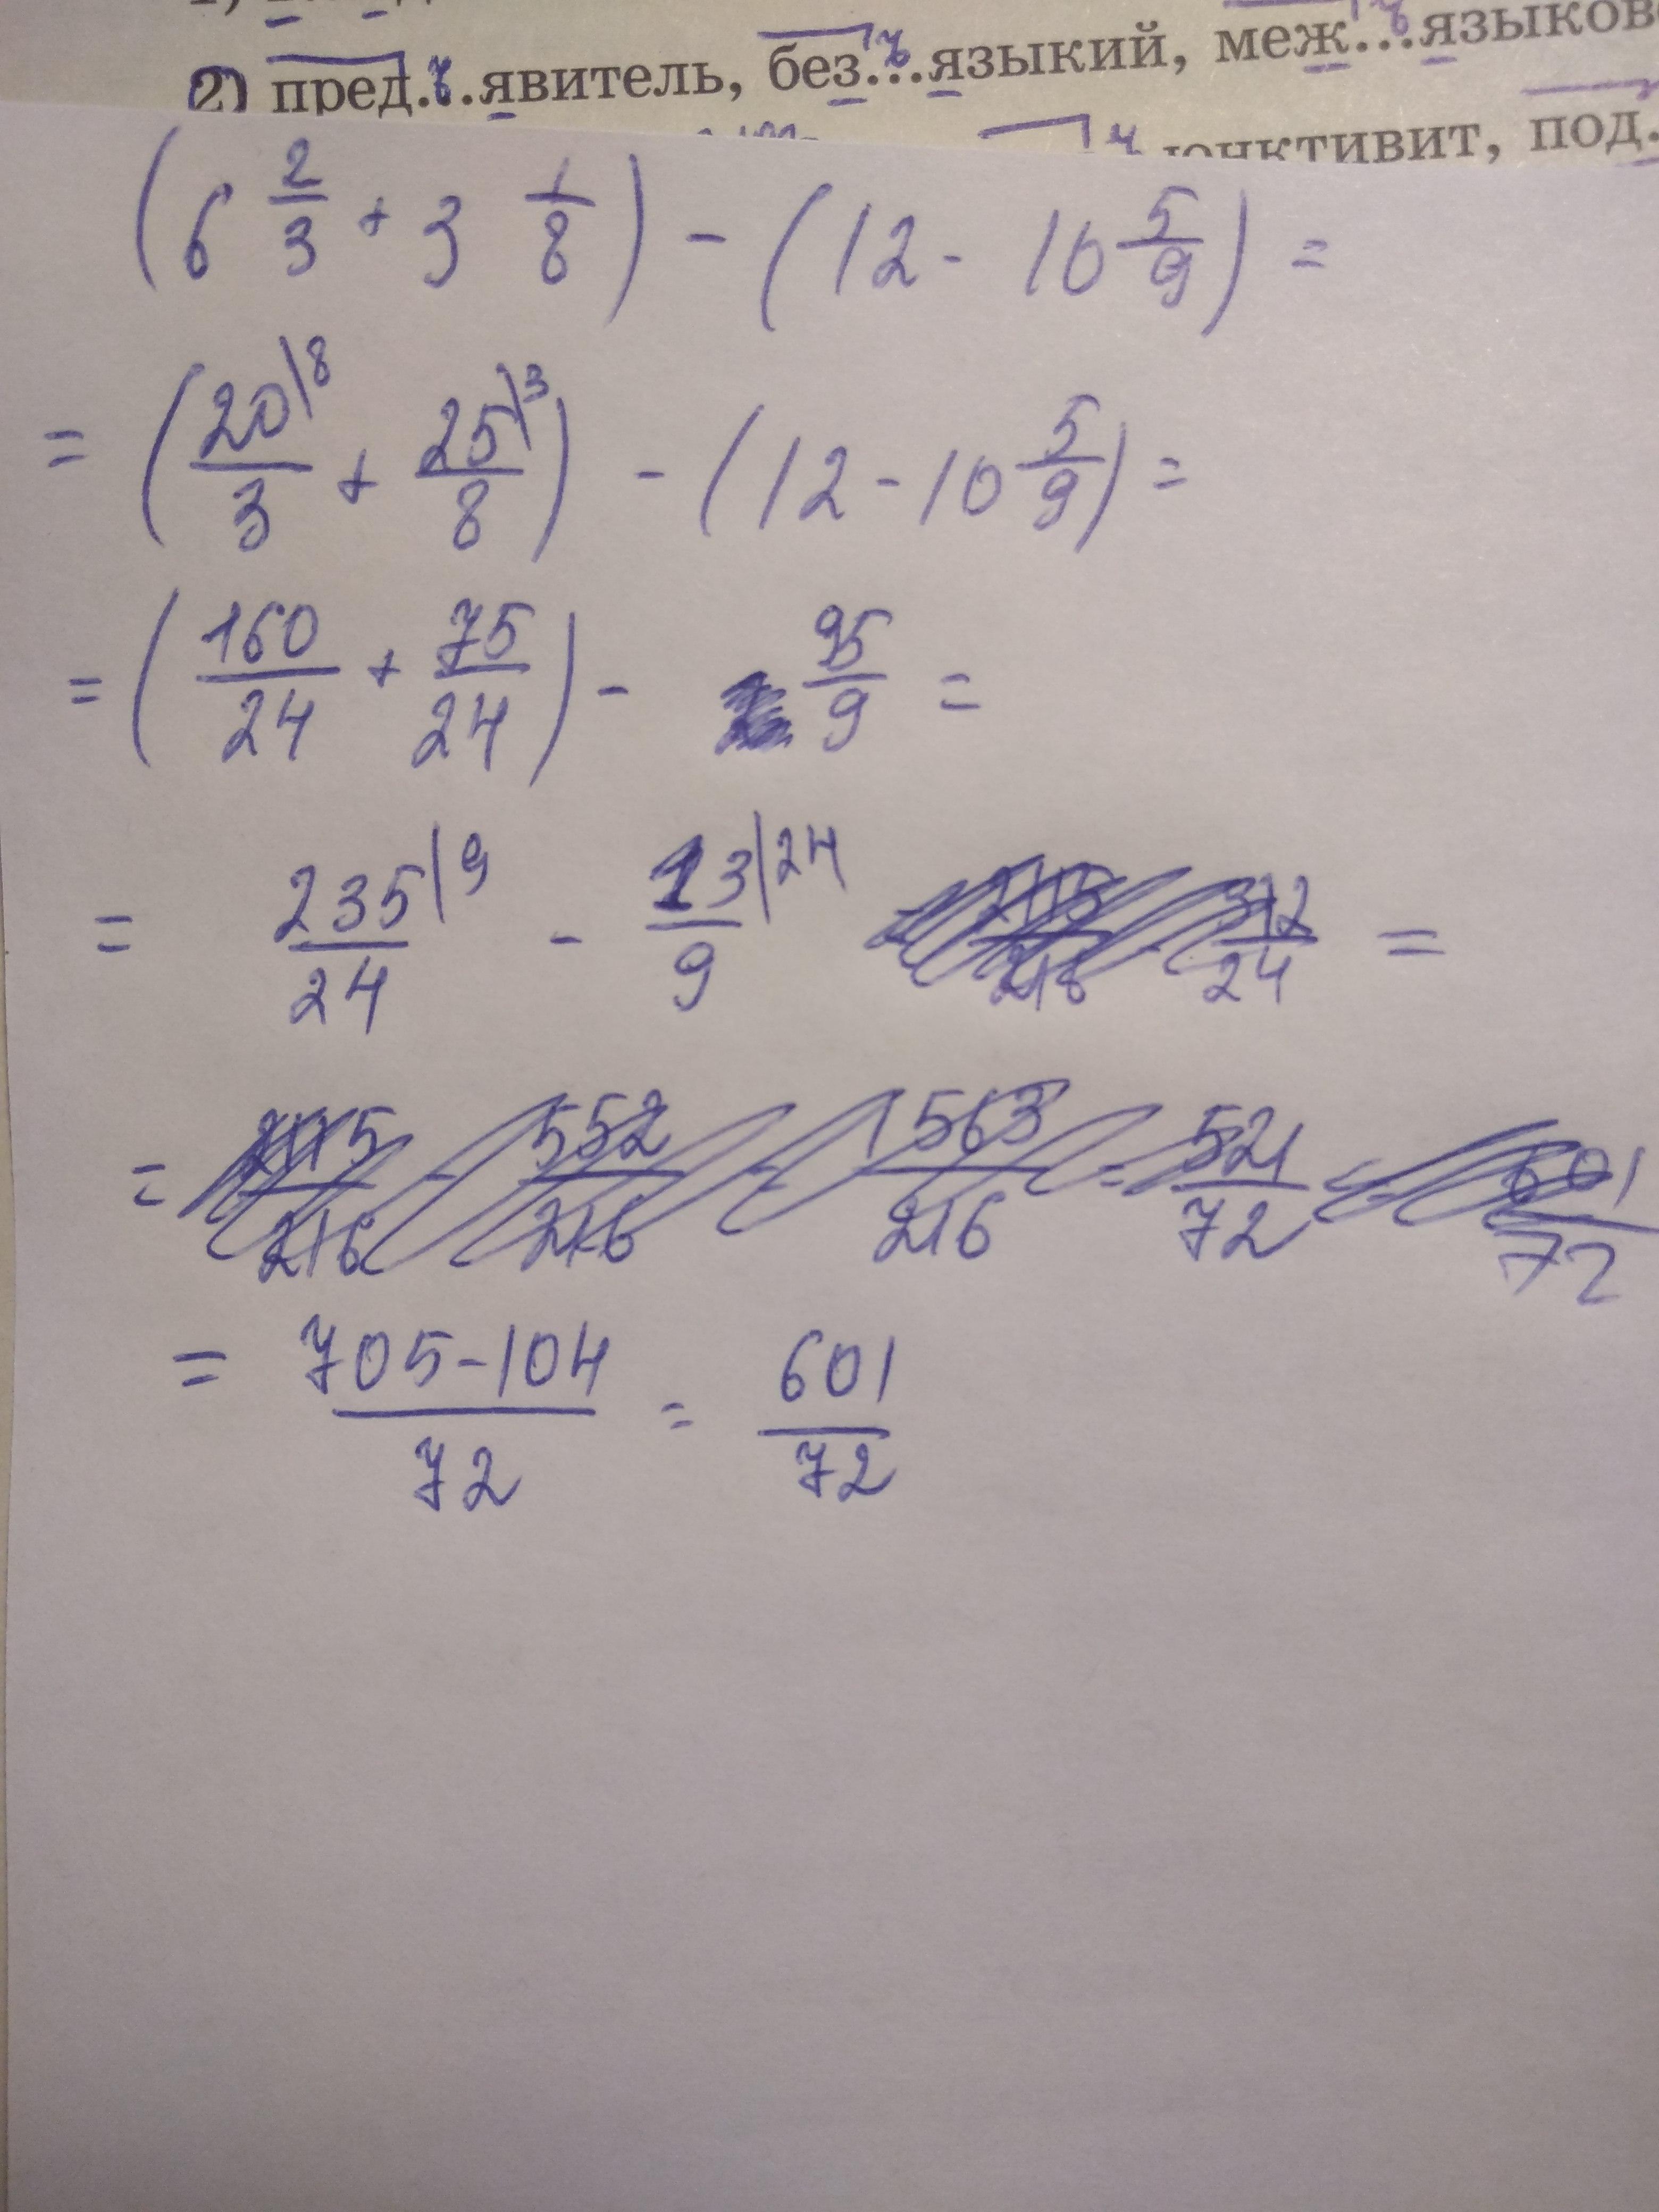 2) пред.ъ.явитель, без.ъ.языкий, меж.ъ.языков
юнктивит, под.
(6 2/3 + 3 1/8) - (12 - 10 5/9) =
= (20/3 |8 + 25/8 |3) - (12 - 10 5/9) =
= (160/24 + 75/24) - 95/9 =
= 235/24 |9 - 13/9 |24 312/24 =
= 552/216 1563/216 = 521/72 = 601/72
= 705-104/72 = 601/72